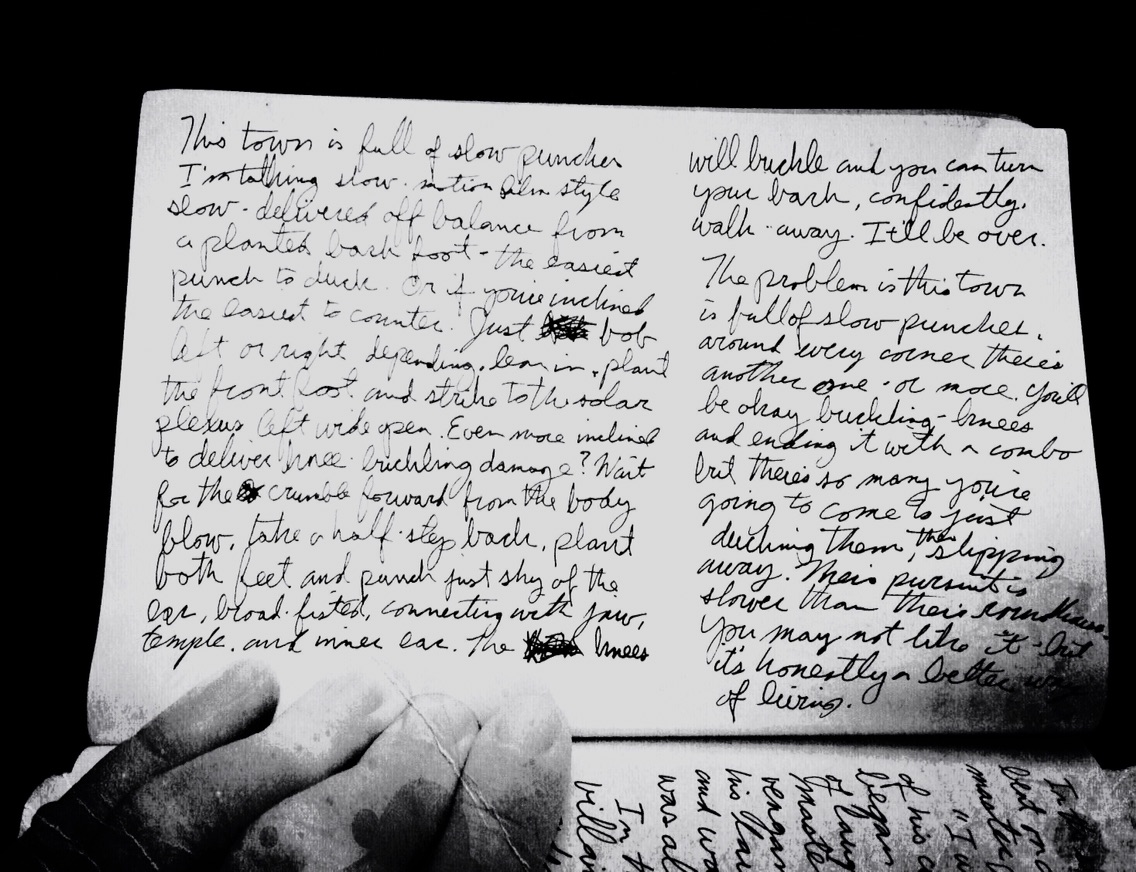 This town is full of slow punches
I'm talking slow-motion film style
slow-delivered off balance from
a planted back foot-the easiest
punch to duck. Or if you're inclined
the easiest to counter. Just bob
left or right depending, lean in, plant
the front foot and strike to the solar
plexus left wide open. Even more inclined
to deliver knee-buckling damage? Wait
for the crumble forward from the body
blow, take a half-step back, plant
both feet and punch just shy of the
ear, broad-fisted, connecting with jaw,
temple, and inner ear. The knees
will buckle and you can turn
your back, confidently,
walk-away. It'll be over.
The problem is this town
is full of slow punches.
around every corner there's
another one-or more. You'll
be okay buckling-knees
and ending it with a combo
but there's so many you're
going to come to just
ducking them, then slipping
away. Their pursuit is
slower than their roundhouses.
You may not like it-but
it's honestly a better way
of living.
villain
I'm
was al
and wa
his
vengean
master
of
began
of his a
"I w
master
but on
In